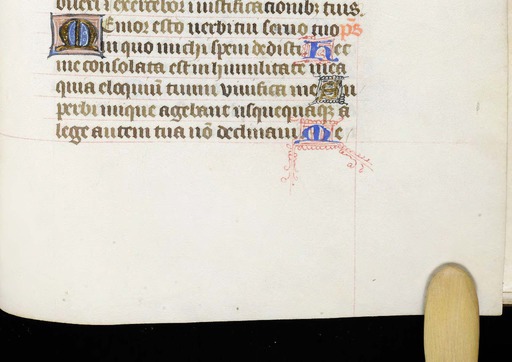 dileri et exercebor i iustificationibꝫ tuis.
Memor esto uerbi tui seruo tuo ps̄
in quo michi spem dedisti Hec
me consolata est in humilitate mea
quia eloquiū tuum uiuificauit me Su
perbi inique agebant usquequaqꝫ a
lege autem tua nō declinaui. Me